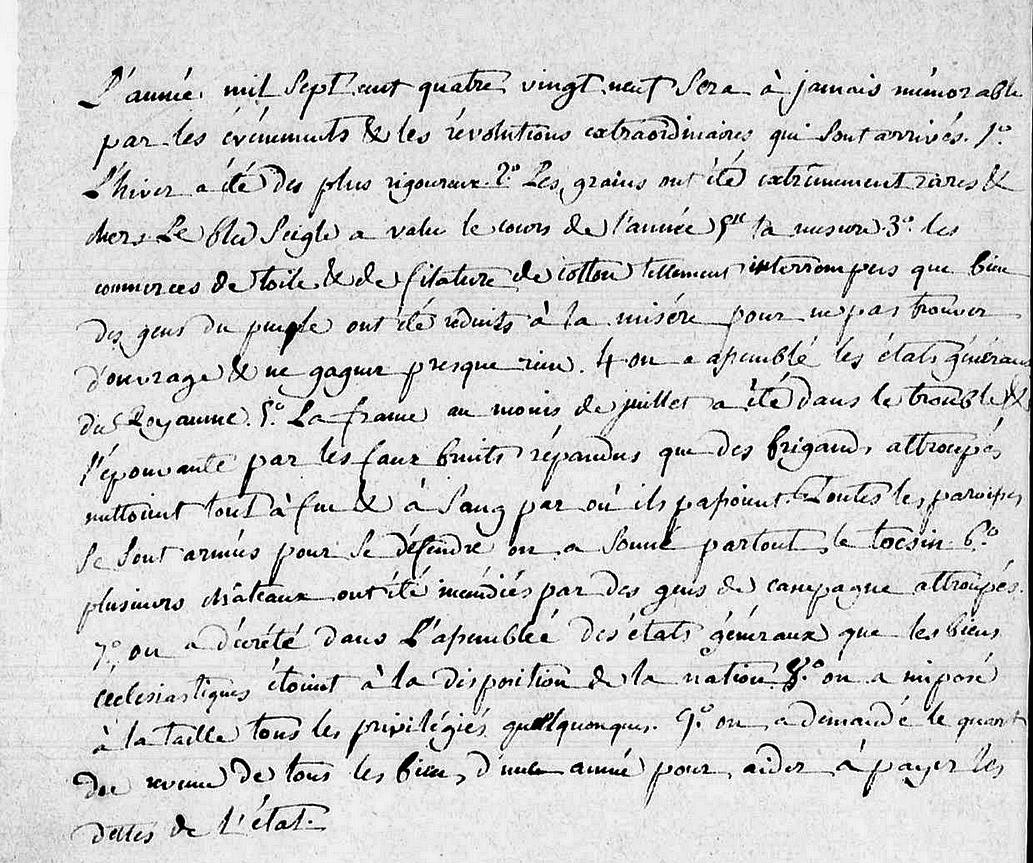 L'année mil sept cent quatre vingt neuf sera à jamais mémorable
par les événements & les révolutions extraordinaires qui sont arrivés. 1.°
L'hiver a été des plus rigoureux. 2.° Les grains ont été extrêmement rares &
chers Le bled seigle a valu le cours de l'année 5ᵗᵗ la mesure. 3.° les
commerces de toile & de filature de cotton tellement interrompus que bien
des gens du peuple ont été réduits à la misére pour ne pas trouver
d'ouvrage & ne gagner presque rien. 4 on a assemblé les états généraux
du Royaume. 5.° La france au mois de juillet a été dans le trouble &
l'épouvante par les faux bruits répandus que des brigands attroupés
mettoient tout à feu & à sang par où ils passoient. Toutes les paroisses
se sont armées pour se défendre on a sonné partout le tocsin 6.°
plusieurs châteaux ont été incendiés par des gens de campagne attroupés.
7.° on a décrété dans L'assemblée des états généraux que les biens
ecclesiastiques étoient à la disposition de la nation 8.° on a imposé
à la taille tous les privilégiés quelquonques. 9.° on a demandé le quart
du revenu de tous les biens d'une année pour aider à payer les
dettes de L'état.